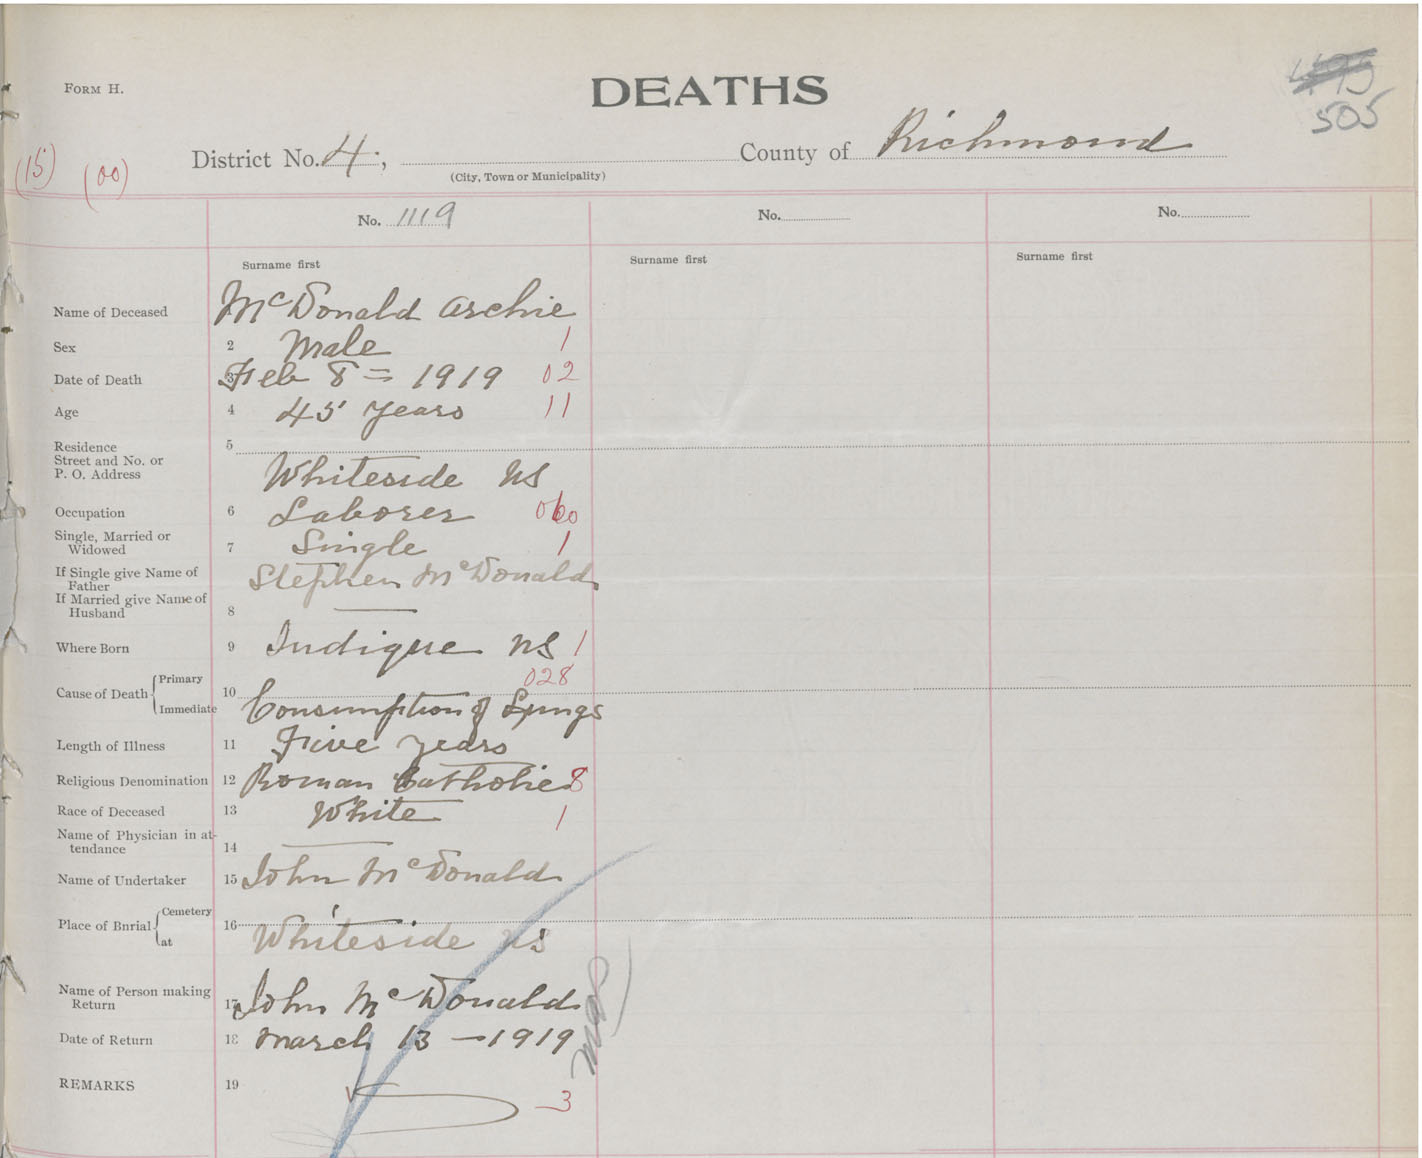 FORM H.
DEATHS
505
(15) (00)
District No. 4., County of Richmond
(City, Town or Municipality)
No. 1119 No. No.
Surname first Surname first Surname first
Name of Deceased McDonald Archie
Sex 2 Male 1
Date of Death 3 Feb 8 = 1919 02
Age 4 45 years 11
Residence 5
Street and No. or
P. O. Address Whiteside NS
Occupation 6 Laborer 060
Single, Married or
Widowed 7 Single 1
If Single give Name of
Father Stephen McDonald
If Married give Name of
Husband 8 —
Where Born 9 Judique NS 1
028
Cause of Death { Primary
Immediate 10 Consumption of Lungs
Length of Illness 11 Five years
Religious Denomination 12 Roman Catholic 8
Race of Deceased 13 White 1
Name of Physician in at-
tendance 14 —
Name of Undertaker 15 John McDonald
Place of Bnrial { Cemetery
at 16 Whiteside NS
Name of Person making
Return 17 John McDonald
Date of Return 18 March 13 — 1919
REMARKS 19 3